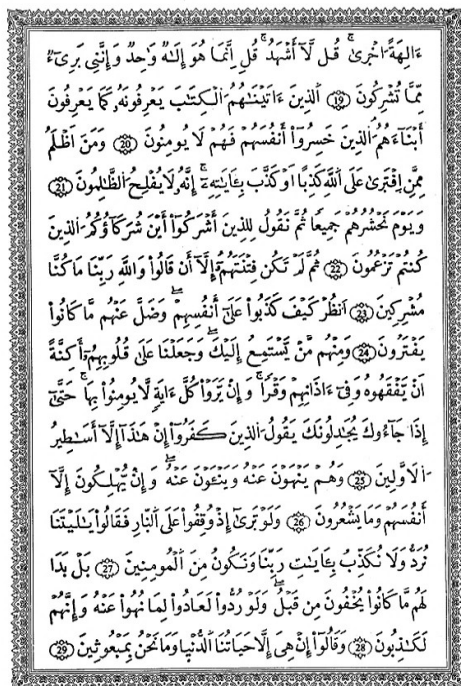 ءَالِهَةً اخْرۭىٰۚ قُل لَّآ أَشْهَدُۚ قُلِ اِنَّمَا هُوَ إِلَٰهٌ وَٰحِدٌ وَإِنَّنِے بَرِےٓءٌ
مِّمَّا تُشْرِكُونَ 19 اَ۬لذِينَ ءَاتَيْنَٰهُمُ اُ۬لْكِتَٰبَ يَعْرِفُونَهُۥ كَمَا يَعْرِفُونَ
أَبْنَآءَهُمُ اُ۬لذِينَ خَسِرُوٓاْ أَنفُسَهُمْ فَهُمْ لَا يُومِنُونَ 20 وَمَنَ اَظْلَمُ
مِمَّنِ اِ۪فْتَر۪ىٰ عَلَى اَ۬للَّهِ كَذِباً اَوْ كَذَّبَ بِـَٔايَٰتِهِۦٓۚ إِنَّهُۥ لَا يُفْلِحُ اُ۬لظَّٰلِمُونَ 21
وَيَوْمَ نَحْشُرُهُمْ جَمِيعاً ثُمَّ نَقُولُ لِلذِينَ أَشْرَكُوٓاْ أَيْنَ شُرَكَآؤُكُمُ اُ۬لذِينَ
كُنتُمْ تَزْعُمُونَ 22 ثُمَّ لَمْ تَكُن فِتْنَتَهُمُۥٓ إِلَّآ أَن قَالُواْ وَاللَّهِ رَبِّنَا مَا كُنَّا
مُشْرِكِينَ 23 اَ۟نظُرْ كَيْفَ كَذَبُواْ عَلَىٰٓ أَنفُسِهِمْۖ وَضَلَّ عَنْهُم مَّا كَانُواْ
يَفْتَرُونَ 24 وَمِنْهُم مَّنْ يَّسْتَمِعُ إِلَيْكَۖ وَجَعَلْنَا عَلَىٰ قُلُوبِهِمُۥٓ أَكِنَّةً
اَنْ يَّفْقَهُوهُ وَفِےٓ ءَاذَانِهِمْ وَقْراًۚ وَإِنْ يَّرَوْاْ كُلَّ ءَايَةٍ لَّا يُومِنُواْ بِهَاۚ حَتَّىٰٓ
إِذَا جَآءُوكَ يُجَٰدِلُونَكَ يَقُولُ اُ۬لذِينَ كَفَرُوٓاْ إِنْ هَٰذَآ إِلَّآ أَسَٰطِيرُ
اُ۬لَاوَّلِينَ 25 وَهُمْ يَنْهَوْنَ عَنْهُ وَيَنْـَٔوْنَ عَنْهُۖ وَإِنْ يُّهْلِكُونَ إِلَّآ
أَنفُسَهُمْ وَمَا يَشْعُرُونَ 26 وَلَوْ تَر۪ىٰٓ إِذْ وُقِفُواْ عَلَى اَ۬لنّ۪ارِ فَقَالُواْ يَٰلَيْتَنَا
نُرَدُّ وَلَا نُكَذِّبُ بِـَٔايَٰتِ رَبِّنَا وَنَكُونُ مِنَ اَ۬لْمُومِنِينَ 27 بَلْ بَدَا
لَهُم مَّا كَانُواْ يُخْفُونَ مِن قَبْلُۖ وَلَوْ رُدُّواْ لَعَادُواْ لِمَا نُهُواْ عَنْهُ وَإِنَّهُمْ
لَكَٰذِبُونَ 28 وَقَالُوٓاْ إِنْ هِيَ إَلَّا حَيَاتُنَا اَ۬لدُّنْي۪ا وَمَا نَحْنُ بِمَبْعُوثِينَ 29